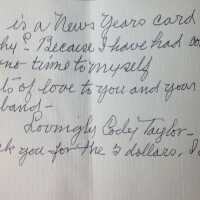 is a New Years card
hy? Because I have had
no time to myself
ts of love to you and your
band -
Lovingly Cody Taylor -
k you for the 5 dollars, I